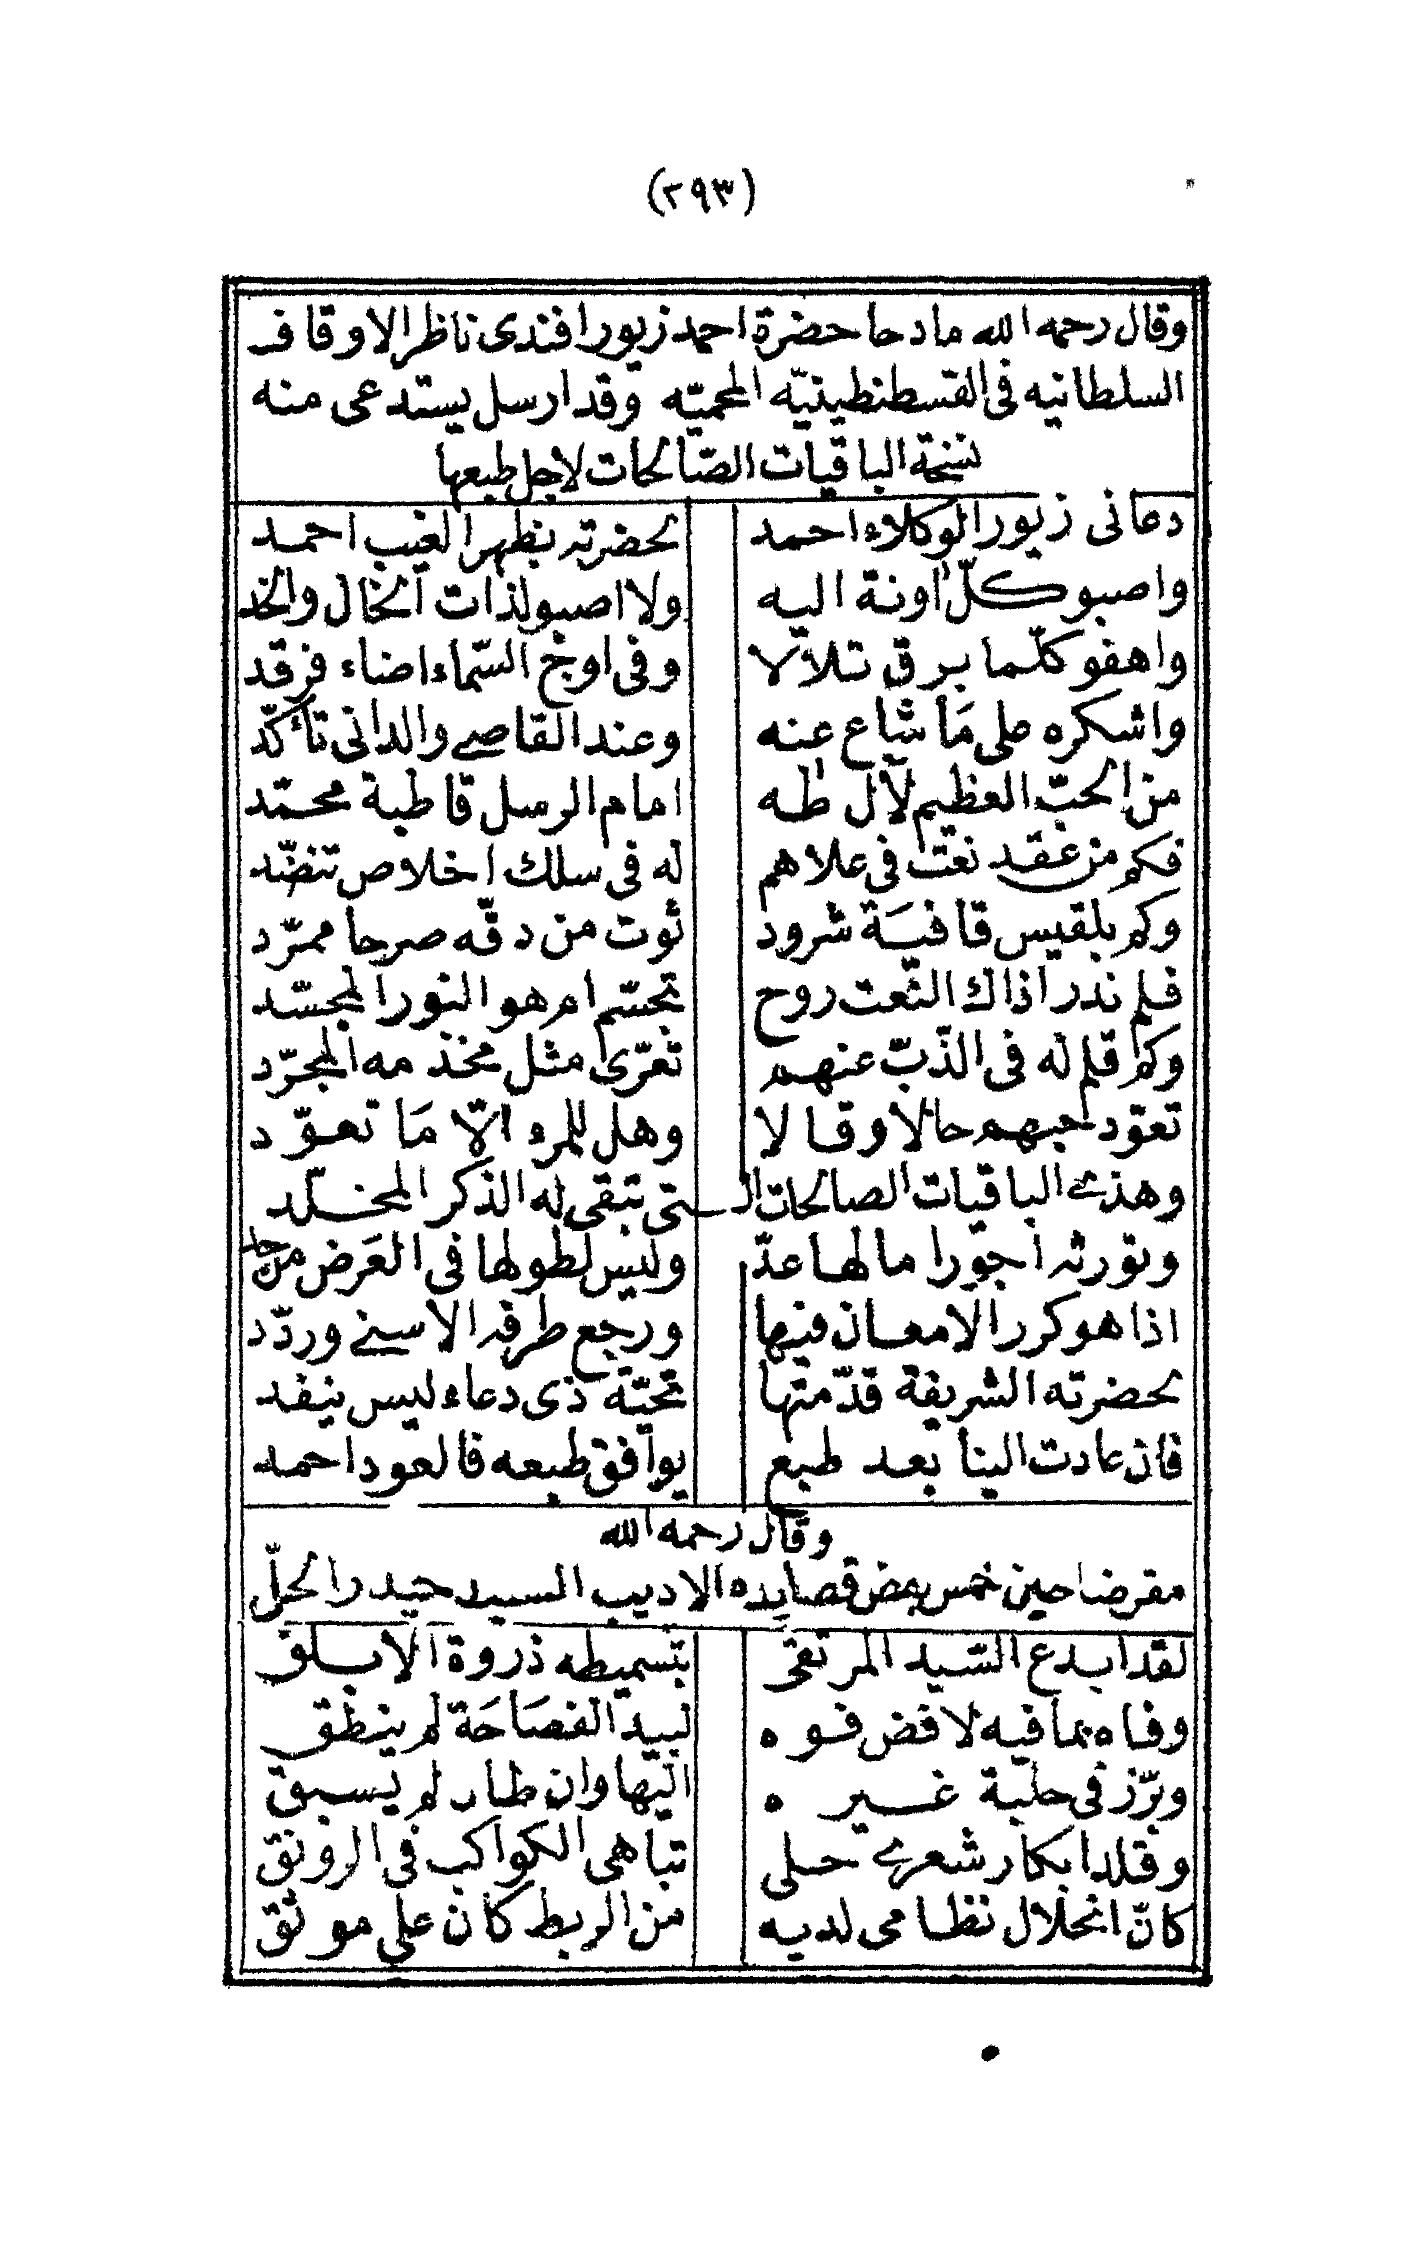 (٢٩٣)
وقال رحمه الله مادحا حضرة احمد زيور افندى ناظر الاوقاف
السلطانيه فى القسطنطينيّه المحميّه وقد ارسل يستدعى منه
نسخة الباقيات الصّالحات لاجل طبعها
دعانى زيور الوكلاء احمد لحضرته بظهر الغيب احمد
واصبو كلّ اونة اليه ولا اصبو لذات الخال والخد
واهفو كلّما برق تلألا وفى اوج السّماء اضاء فرقد
واشكره على مَا شاع عنه وعند القاصے والدانى تأكّد
من الحبّ العظيم لآل طه امام الرسل قاطبة محمّد
فكم من عقد نعت فى علاهم له فى سلك اخلاص تنضّد
وكم بلقيس قافيَة شرود ثوت من دقّه صرحا ممرّد
فلم ندر اذاك النّعت روح تجسّم ام هو النور المجسّد
وكم قلم له فى الذبّ عنهم تعرّى مثل مخذمه المجرّد
تعوّد حبهم حالا وقالا وهل للمرء الّا مَا تعوّد
وهذے الباقيات الصالحات الستى تبقى له الذكر المخلّد
وتورثه اجورا مالها عدّ وليس لطولها فى العَرض من حد
اذا هو كرر الامعان فيها ورجع طرفه الاسنے وردّد
لحضرته الشريفة قدّمتها تحيّة ذى دعاء ليس ينفد
فان عادت الينا بعد طبع يوافق طبعه فالعود احمد
وقال رحمه الله
مقرضا حين خمس بعض قصايده الاديب السيد حيدر الحلّى
لقد ابدع السّيد المرتقى بتسميطه ذروة الابلق
وفاه بما فيه لا فض فوه لبيد الفصَاحَة لم ينطق
وبرّز فى حلبة غيره اليها وان طار لم يسبق
وقلد ابكار شعرے حلى تباهى الكواكب فى الرونق
كانّ انحلال نظامى لديه من الربط كان على موثق